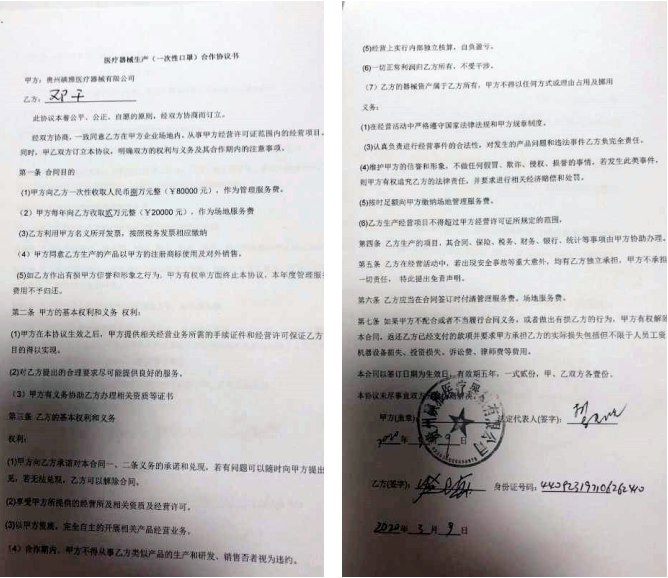 医疗器械生产（一次性口罩）合作协议书
甲方：贵州 医疗器械有限公司
乙方：
此协议本着公平、公正、自愿的原则，经双方协商而订立。
经双方协商，一致同意乙方在甲方企业场地内，从事甲方经营许可证范围内的经营项目，
同时，甲乙双方订立本协议，明确双方的权利与义务及其合作期内的注意事项。
第一条 合同目的
(1)甲方向乙方一次性收取人民币捌万元整（￥80000 元），作为管理服务费。
（2）甲方每年向乙方收取贰万元整（￥20000 元），作为场地服务费
(3)乙方利用甲方名义所开发票，按照税务发票相应缴纳
（4）甲方同意乙方生产的产品以甲方的注册商标使用及对外销售。
(5)如乙方作出有损甲方信誉和形象之行为，甲方有权单方面终止本协议，本年度管理服
费用不予归还。
第二条 甲方的基本权利和义务 权利：
(1)甲方在本协议生效之后，甲方提供相关经营业务所需的手续证件和经营许可保证乙方
目的得以实现。
(2)对乙方提出的合理要求尽可能提供良好的服务。
（3）甲方有义务协助乙方办理相关资质等证书
第三条 乙方的基本权利和义务
权利：
(1)甲方向乙方承诺对本合同一、二条义务的承诺和兑现，若有问题可以随时向甲方提出
见，若无法兑现，乙方可以解除合同。
(2)享受甲方所提供的经营所及相关资质及经营许可。
(3)以甲方资质，完全自主的开展相关产品经营业务。
（4）合作期内，甲方不得从事乙方类似产品的生产和研发、销售否者视为违约。
(5)经营上实行内部独立核算，自负盈亏。
(6)一切正常利润归乙方所有，不受干涉。
（7）乙方的器械资产属于乙方所有，甲方不得以任何方式或理由占用及挪用
义务：
(1)在经营活动中严格遵守国家法律法规和甲方规章制度。
(3)认真负责进行经营事件的合法性，对发生的产品问题和违法事件乙方负完全责任。
(4)维护甲方的信誉和形象，不做任何假冒、欺诈、侵权、损誉的事情，若发生此类事件，
则甲方有权追究乙方的法律责任，并要求进行相关经济赔偿和处罚。
(5)按时足额向甲方缴纳场地管理服务费。
(6)乙方生产经营项目不得超过甲方经营许可证所规定的范围。
第四条 乙方生产的项目，其合同、保险、税务、财务、银行、统计等事项由甲方协助办理。
第五条 乙方在经营活动中，若出现安全事故等重大意外，均有乙方独立承担，甲方不承担
一切责任， 特此提出免责声明。
第六条 乙方应当在合同签订时付清管理服务费，场地服务费。
第七条 如果甲方不配合或者不当履行合同义务，或者做出有损乙方的行为，甲方有权解除
本合同，退还乙方已经支付的款项并要求甲方承担乙方的实际损失包括但不限于人员工资
机器设备损失、投资损失、诉讼费、律师费等费用。
本合同以签订日期为生效日，有效期五年，一式贰份，甲、乙双方各壹份。
本协议未尽事宜双方
甲方(盖章) 法定代表人(签字)：
2020 年 3 月 9 日
乙方(签字)： 身份证号码：440923197106262440
2020 年 3 月 9 日